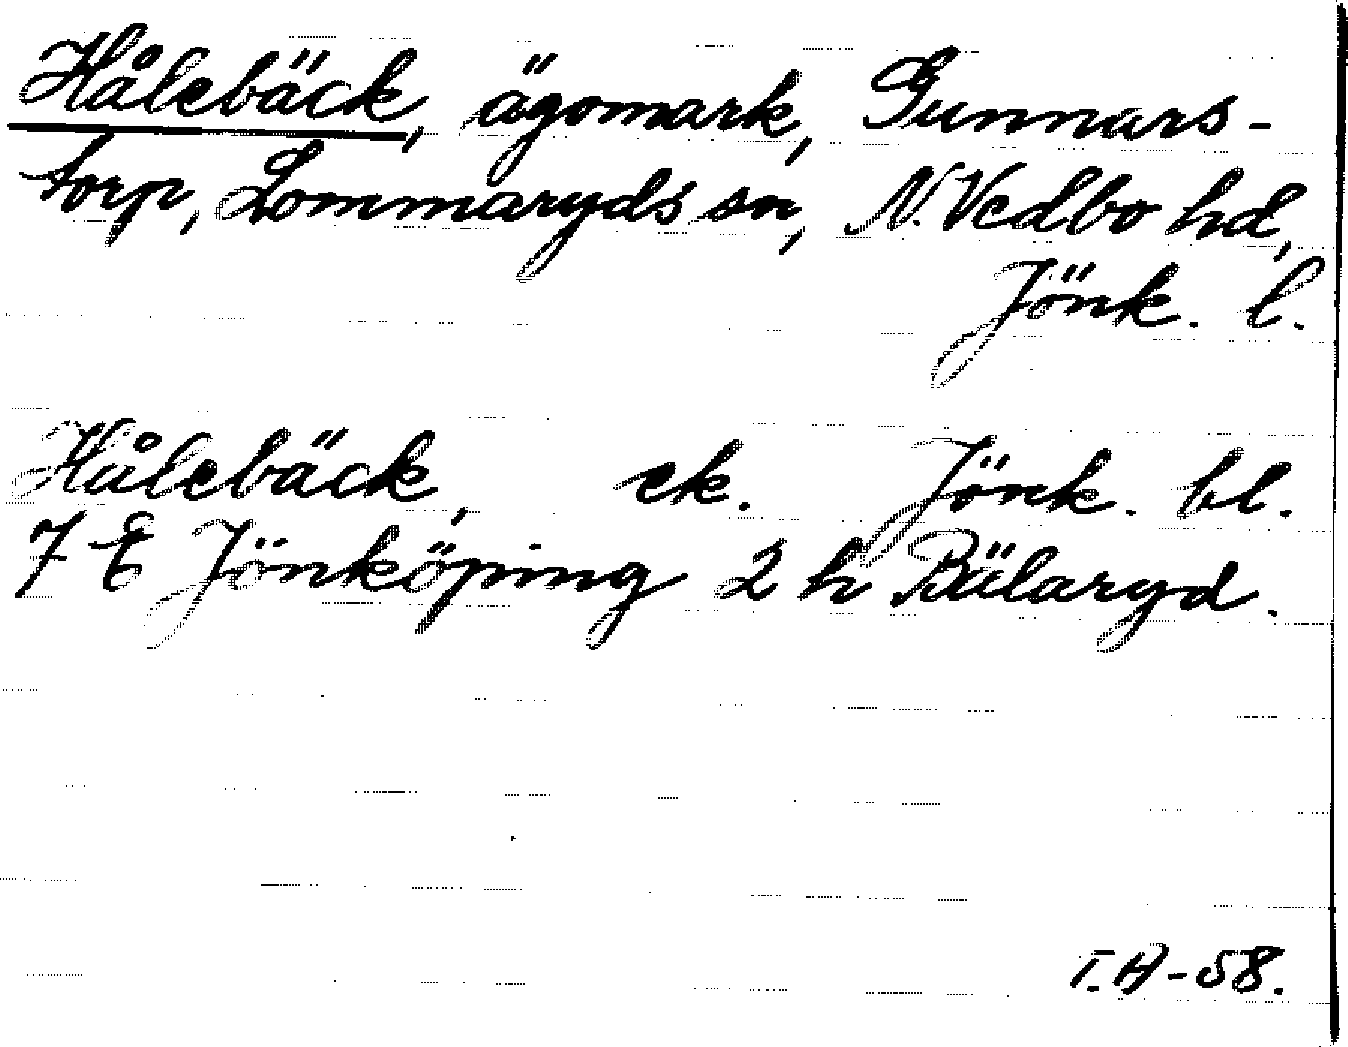 Hålebäck, ägomark, Gunnars-
torp, Lommaryds sn, N. Vedbo hd,
Jönk. l.
Hålebäck, ek. Jönk. bl.
7 E Jönköping 2 h Bälaryd.
T.A-58.